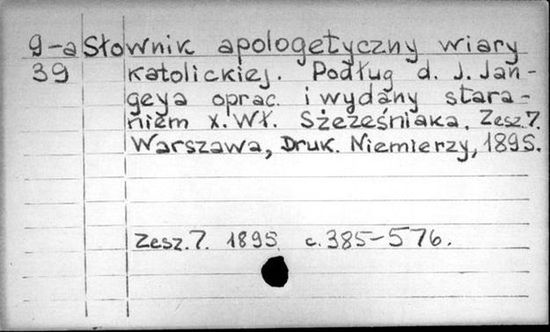 9-a Słownik apologetyczny wiary
39 katolickiej. Podług d. J. Jan-
geya oprac. i wydany stara-
niem X. Wł. Sżeześniaka. Zesz. 7.
Warszawa, Druk. Niemierzy, 1895.
Zesz. 7. 1895 c. 385-576.